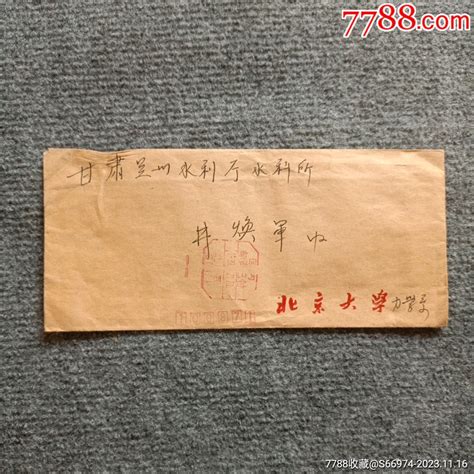 7788.com
甘肃兰州水利厅水科所
井焕军收
北京大学力学系
7788收藏@S66974-2023.11.16